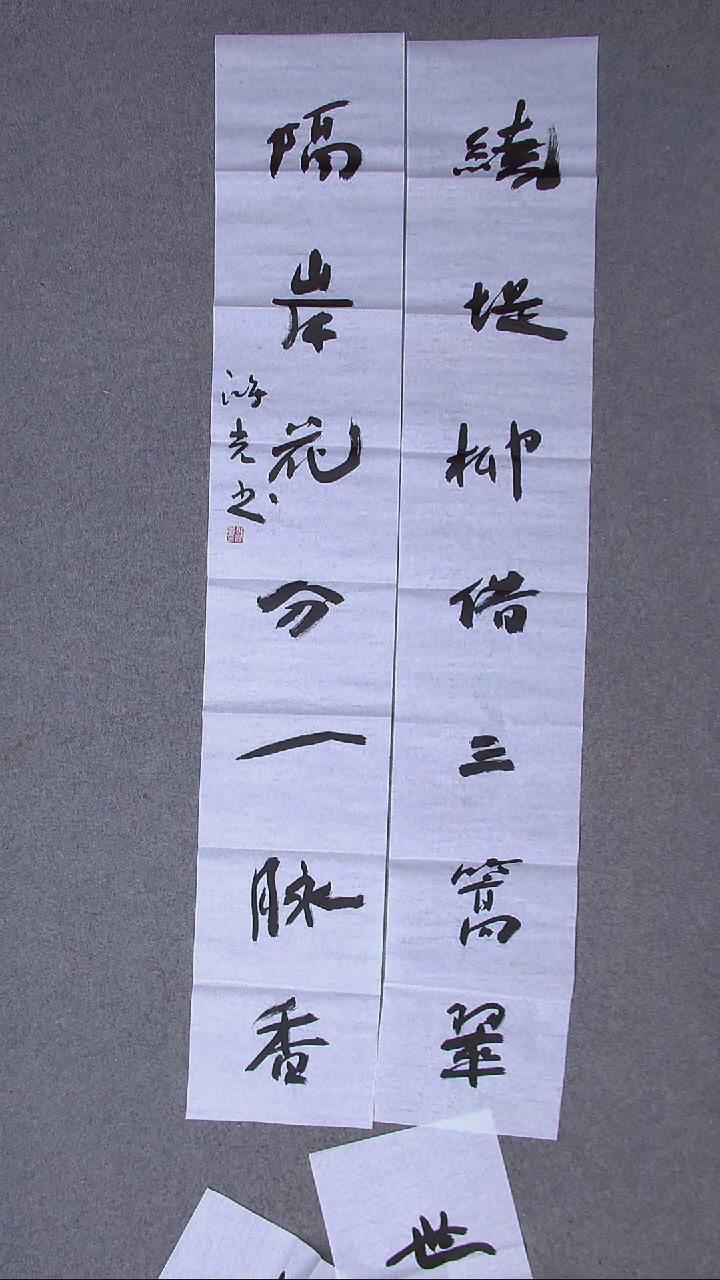 繞堤柳借三篙翠
隔岸花分一脉香
鴻光书
世